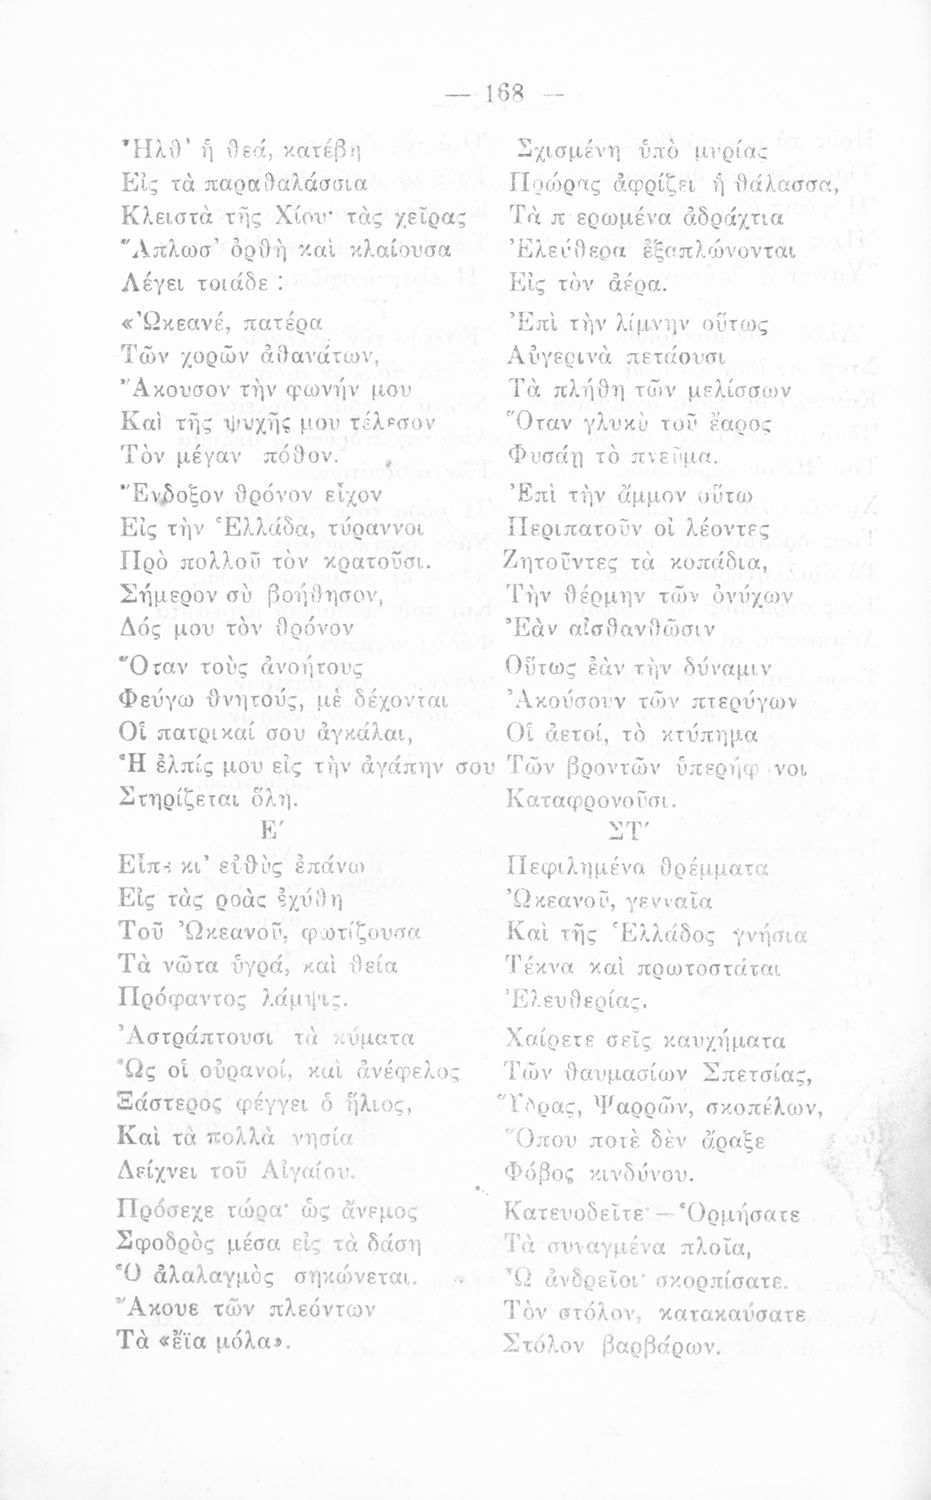 — 168 —
Ἦλθ' ἡ θεά, κατέβη
Εἰς τὰ παραθαλάσσια
Κλειστὰ τῆς Χίου· τὰς χεῖρας
Ἅπλωσ' ὀρθὴ καὶ κλαίουσα
Λέγει τοιάδε :
«Ὠκεανέ, πατέρα
Τῶν χορῶν ἀθανάτων,
Ἄκουσον τὴν φωνήν μου
Καὶ τῆς ψυχῆς μου τέλεσον
Τὸν μέγαν πόθον.
Ἔνδοξον θρόνον εἶχον
Εἰς τὴν Ἑλλάδα, τύραννοι
Πρὸ πολλοῦ τὸν κρατοῦσι.
Σήμερον σὺ βοήθησον,
Δός μου τὸν θρόνον
Ὅταν τοὺς ἀνοήτους
Φεύγω θνητούς, μὲ δέχονται
Οἱ πατρικαί σου ἀγκάλαι,
Ἡ ἐλπίς μου εἰς τὴν ἀγάπην σου
Στηρίζεται ὅλη.
Ε'
Εἶπε κι' εὐθὺς ἐπάνω
Εἰς τὰς ροὰς ἐχύθη
Τοῦ Ὠκεανοῦ, φωτίζουσα
Τὰ νῶτα ὑγρά, καὶ θεία
Πρόφαντος λάμψις.
Ἀστράπτουσι τὰ κύματα
Ὡς οἱ οὐρανοί, καὶ ἀνέφελος
Ξάστερος φέγγει ὁ ἥλιος,
Καὶ τὰ πολλὰ νησία
Δείχνει τοῦ Αἰγαίου.
Πρόσεχε τώρα· ὡς ἄνεμος
Σφοδρὸς μέσα εἰς τὰ δάση
Ὁ ἀλαλαγμὸς σηκώνεται.
Ἄκουε τῶν πλεόντων
Τὰ «ἔϊα μόλα».
Σχισμένη ὑπὸ μυρίας
Πρώρας ἀφρίζει ἡ θάλασσα,
Τὰ π ερωμένα ἀδράχτια
Ἐλεύθερα ἐξαπλώνονται
Εἰς τὸν ἀέρα.
Ἐπὶ τὴν λίμνην οὕτως
Αὐγερινὰ πετάουσι
Τὰ πλήθη τῶν μελίσσων
Ὅταν γλυκὺ τοῦ ἔαρος
Φυσάῃ τὸ πνεῦμα.
Ἐπὶ τὴν ἄμμον οὕτω
Περιπατοῦν οἱ λέοντες
Ζητοῦντες τὰ κοπάδια,
Τὴν θέρμην τῶν ὀνύχων
Ἐὰν αἰσθανθῶσιν
Οὕτως ἐὰν τὴν δύναμιν
Ἀκούσουν τῶν πτερύγων
Οἱ ἀετοί, τὸ κτύπημα
Τῶν βροντῶν ὑπερήφ νοι
Καταφρονοῦσι.
ΣΤ'
Πεφιλημένα θρέμματα
Ὠκεανοῦ, γενναῖα
Καὶ τῆς Ἑλλάδος γνήσια
Τέκνα καὶ πρωτοστάται
Ἐλευθερίας.
Χαίρετε σεῖς καυχήματα
Τῶν θαυμασίων Σπετσίας,
Ὕδρας, Ψαρρῶν, σκοπέλων,
Ὅπου ποτὲ δὲν ἄραξε
Φόβος κινδύνου.
Κατευοδεῖτε· — Ὁρμήσατε
Τὰ συναγμένα πλοῖα,
Ὦ ἀνδρεῖοι· σκορπίσατε.
Τὸν στόλον, κατακαύσατε
Στόλον βαρβάρων.